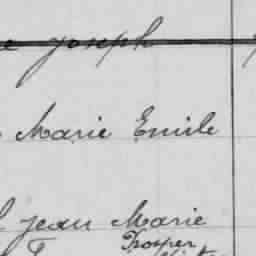 Joseph
Marie Emile
Jean Marie
Prosper